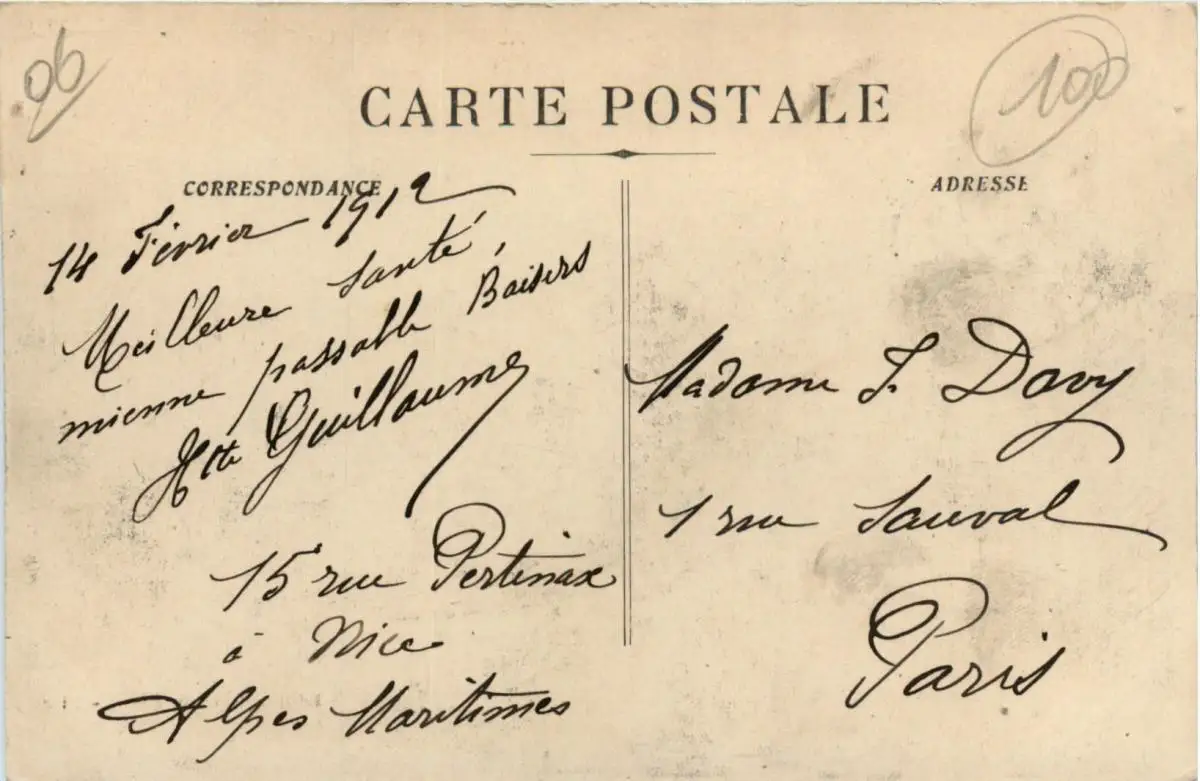 06
100
CARTE POSTALE
CORRESPONDANCE
14 Février 1912
Meilleure santé,
mienne passable Baisers
Hte Guillaume
15 rue Pertinax
à Nice
Alpes Maritimes
ADRESSE
Madame F. Davy
1 rue Sauval
Paris